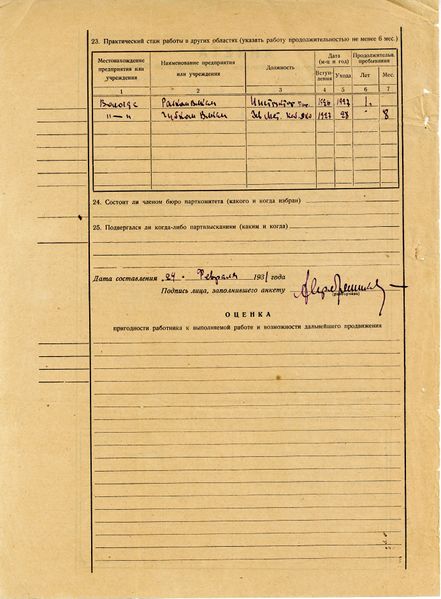 23. Практический стаж работы в других областях (указать работу продолжительностью не менее 6 мес.)
Местонахождение предприятия или учреждения
Наименование предприятия или учреждения
Должность
Дата (м-ц и год)
Вступления
Ухода
Продолжительн. пребывания
Лет
Мес.
1 2 3 4 5 6 7
Вологда 1926 1927 1
"—" 1927 28 - 8
24. Состоит ли членом бюро парткомитета (какого и когда избран)
25. Подвергался ли когда-либо партвзысканиям (каким и когда)
Дата составления 24 - Февраля 1931 года
Подпись лица, заполнившего анкету
(разборчиво)
ОЦЕНКА
пригодности работника к выполняемой работе и возможности дальнейшего продвижения